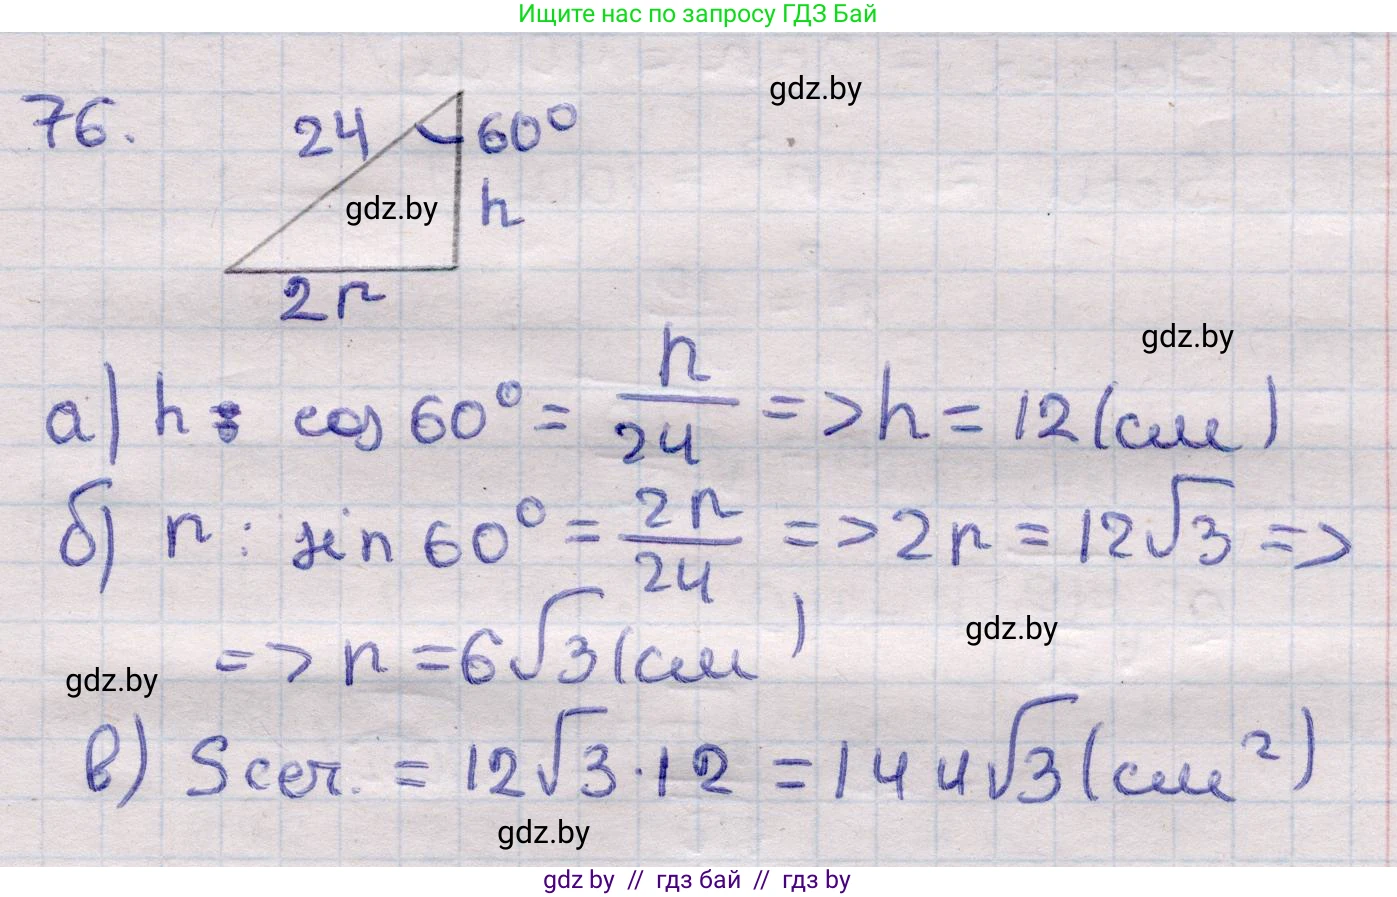 Ищите нас по запросу ГДЗ Бай
gdz.by
76.
24
60°
gdz.by
h
2r
gdz.by
а) h : cos 60° = h/24 => h = 12 (см)
б) r : sin 60° = 2r/24 => 2r = 12√3 =>
=> r = 6√3 (см)
gdz.by
gdz.by
в) Sсеч. = 12√3 · 12 = 144√3 (см²)
gdz.by
gdz by // гдз бай // гдз by